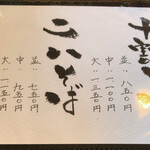 並：八五〇円
中：一一〇〇円
大：一三五〇円
二八そば
並：七五〇円
中：九五〇円
大：一一五〇円